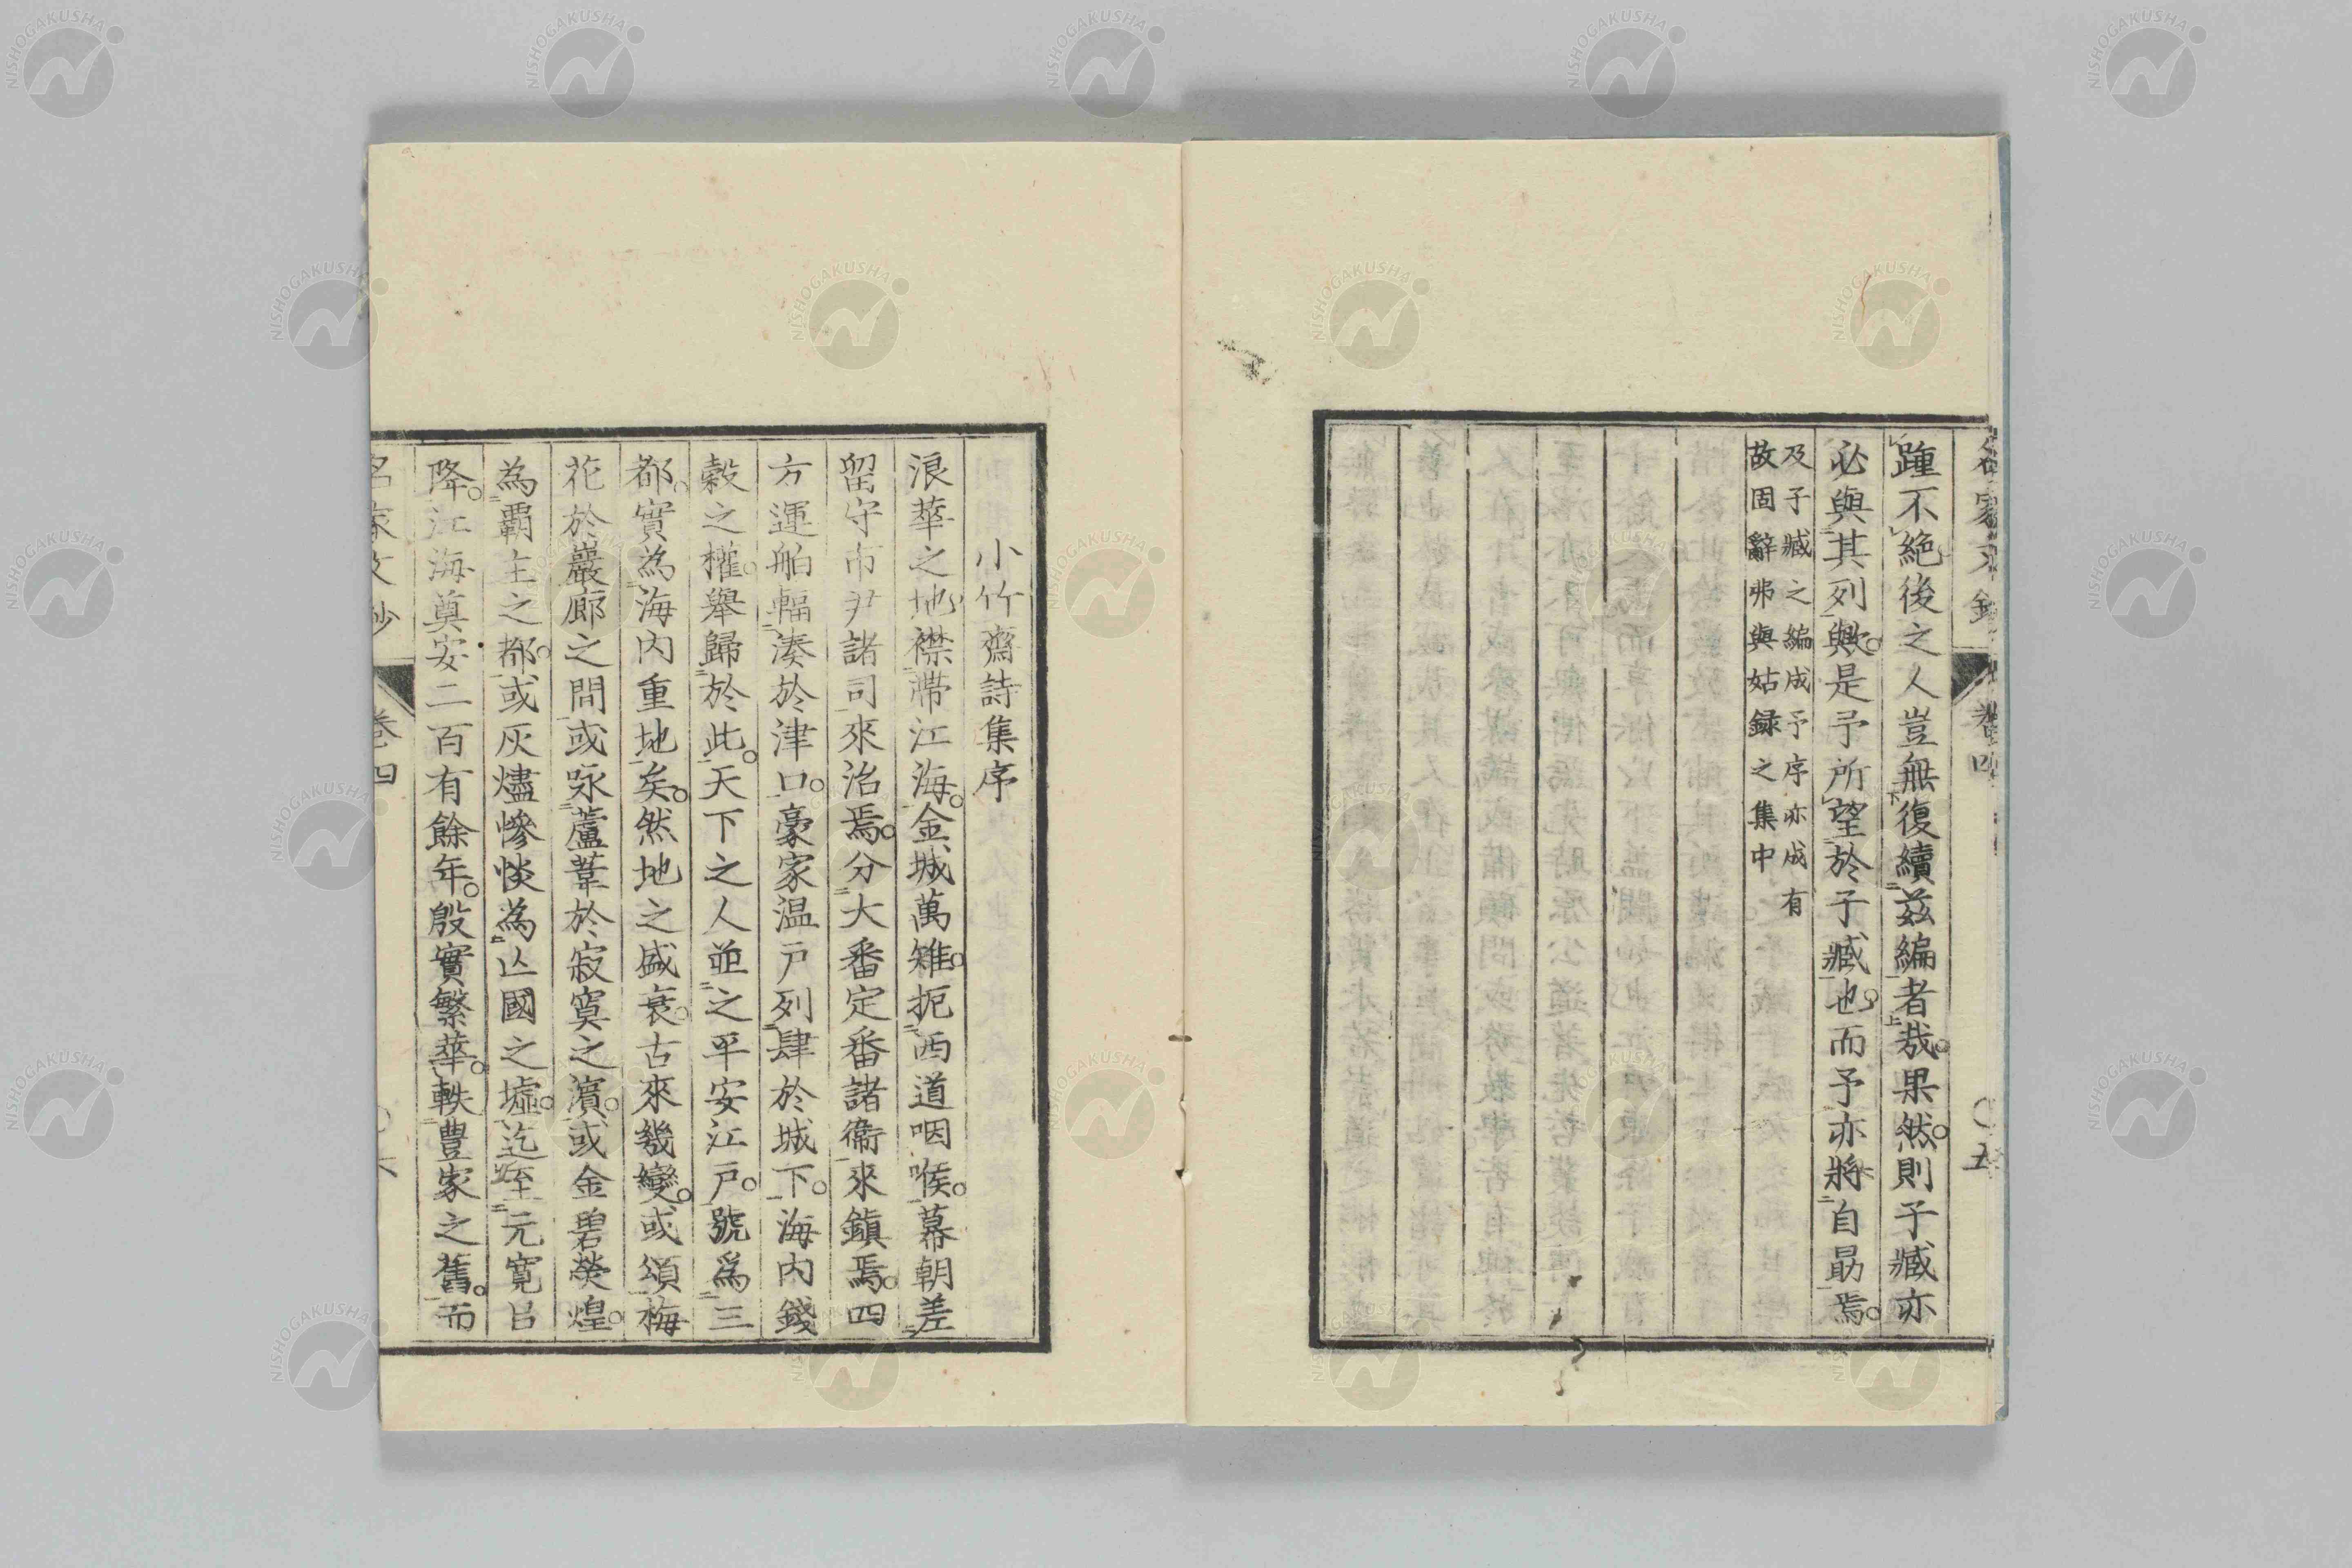 踵不絶後之人豈無復續兹編者哉果然則子臧亦
必與其列歟是予所望於子臧也而予亦將自勗焉
及子臧之編成予序亦成有
故固辭弗與姑録之集中
小竹齋詩集序
浪華之地襟帶江海金城萬雉扼西道咽喉幕朝差
留守市尹諸司來治焉分大番定番諸衞來鎮焉四
方運舶輻湊於津口豪家温戸列肆於城下海内錢
穀之權舉歸於此天下之人並之平安江戸號為三
都實為海内重地矣然地之盛衰古來幾變或頌梅
花於巖廊之間或咏蘆葦於寂寞之濱或金碧熒煌
為霸主之都或灰燼慘惔為亾國之墟迄至元寛吕
降江海奠安二百有餘年殷實繁華軼豊家之舊而
名家文抄
卷四
六
NISHOGAKUSHA